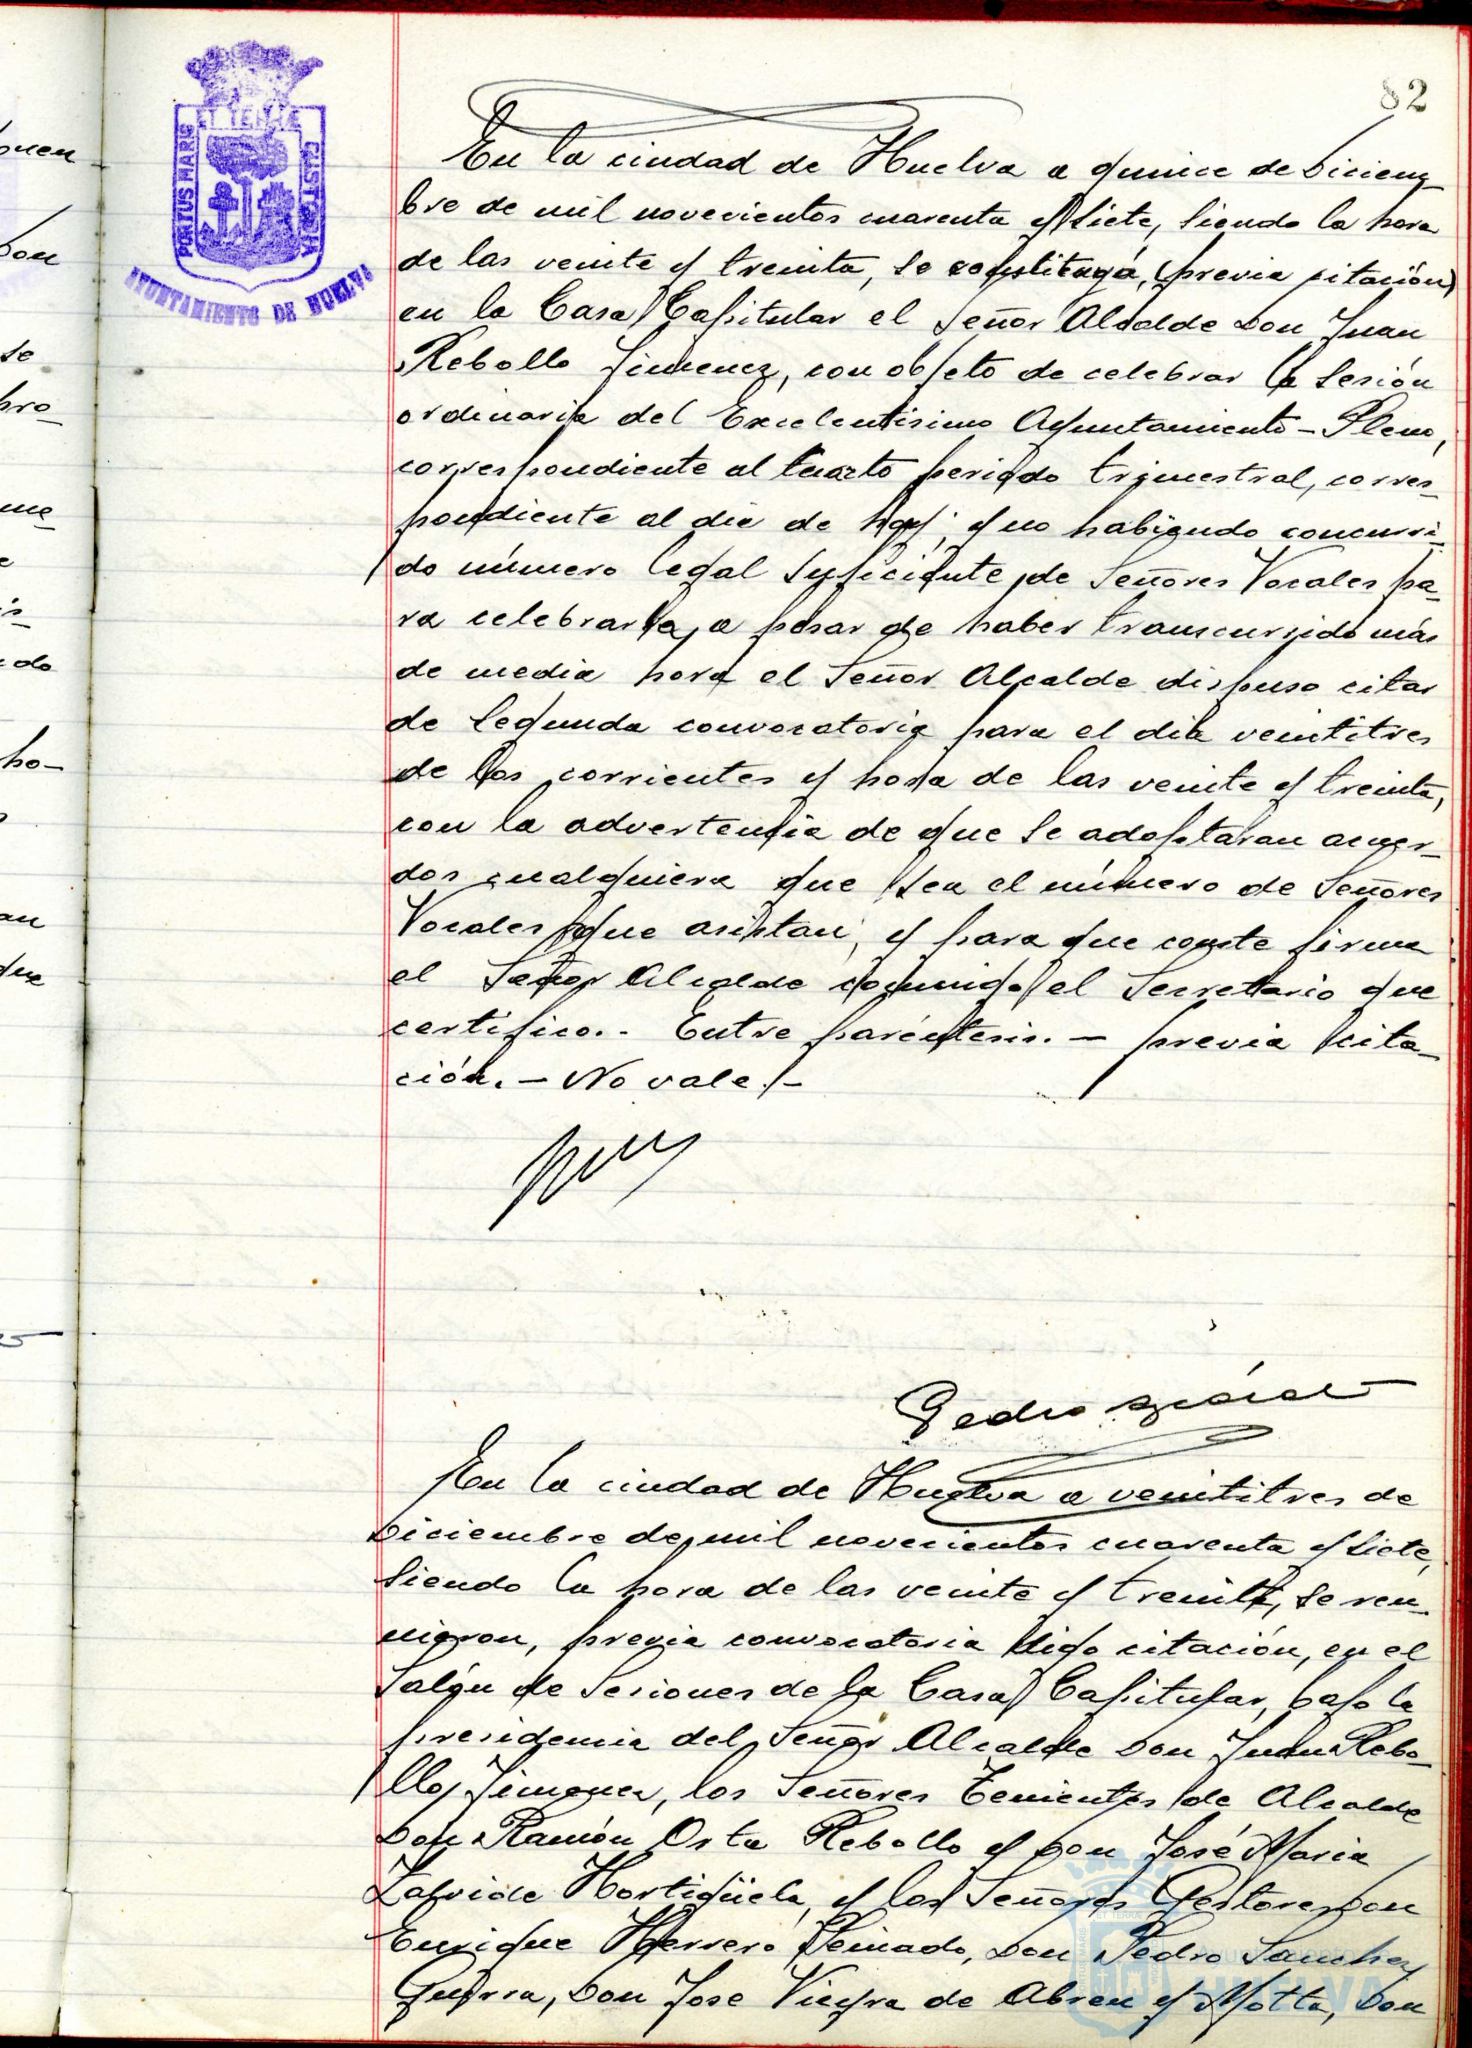 82
ET TERRÆ
PORTUS MARIS
CUSTODIA
AYUNTAMIENTO DE HUELVA
En la ciudad de Huelva a quince de Diciem-
bre de mil novecientos cuarenta y siete, siendo la hora
de las veinte y treinta, se constituyó, (previa citación)
en la Casa Capitular el Señor Alcalde Don Juan
Rebollo Jimenez, con objeto de celebrar la sesión
ordinaria del Excelentisimo Ayuntamiento - Pleno,
correspondiente al cuarto periodo trimestral, corres-
pondiente al dia de hoy; y no habiendo concurri-
do número legal suficiente de Señores Vocales pa-
ra celebrarla, a pesar de haber transcurrido más
de media hora el Señor Alcalde dispuso citar
de segunda convocatoria para el dia veintitres
de los corrientes y hora de las veinte y treinta,
con la advertencia de que se adoptaran acuer-
dos cualquiera que sea el número de Señores
Vocales que asistan; y para que conste firma
el Señor Alcalde conmigo el Secretario que
certifico.- Entre paréntesis. - previa cita-
ción. - No vale. -
Pedro
En la ciudad de Huelva a veintitres de
Diciembre de mil novecientos cuarenta y siete,
siendo la hora de las veinte y treinta, se reu-
nieron, previa convocatoria digo citación, en el
Salón de Sesiones de la Casa Capitular, bajo la
presidencia del Señor Alcalde Don Juan Rebo-
llo Jimenez, los Señores Tenientes de Alcalde
Don Ramón Orta Rebollo y Don José Maria
Zafride Hortigüela, y los Señores Gestores Don
Enrique Herrero Peinado, Don Pedro Sanchez
Guerra, Don Jose Vieyra de Abreu y Motta, Don
Ayuntamiento
HUELVA